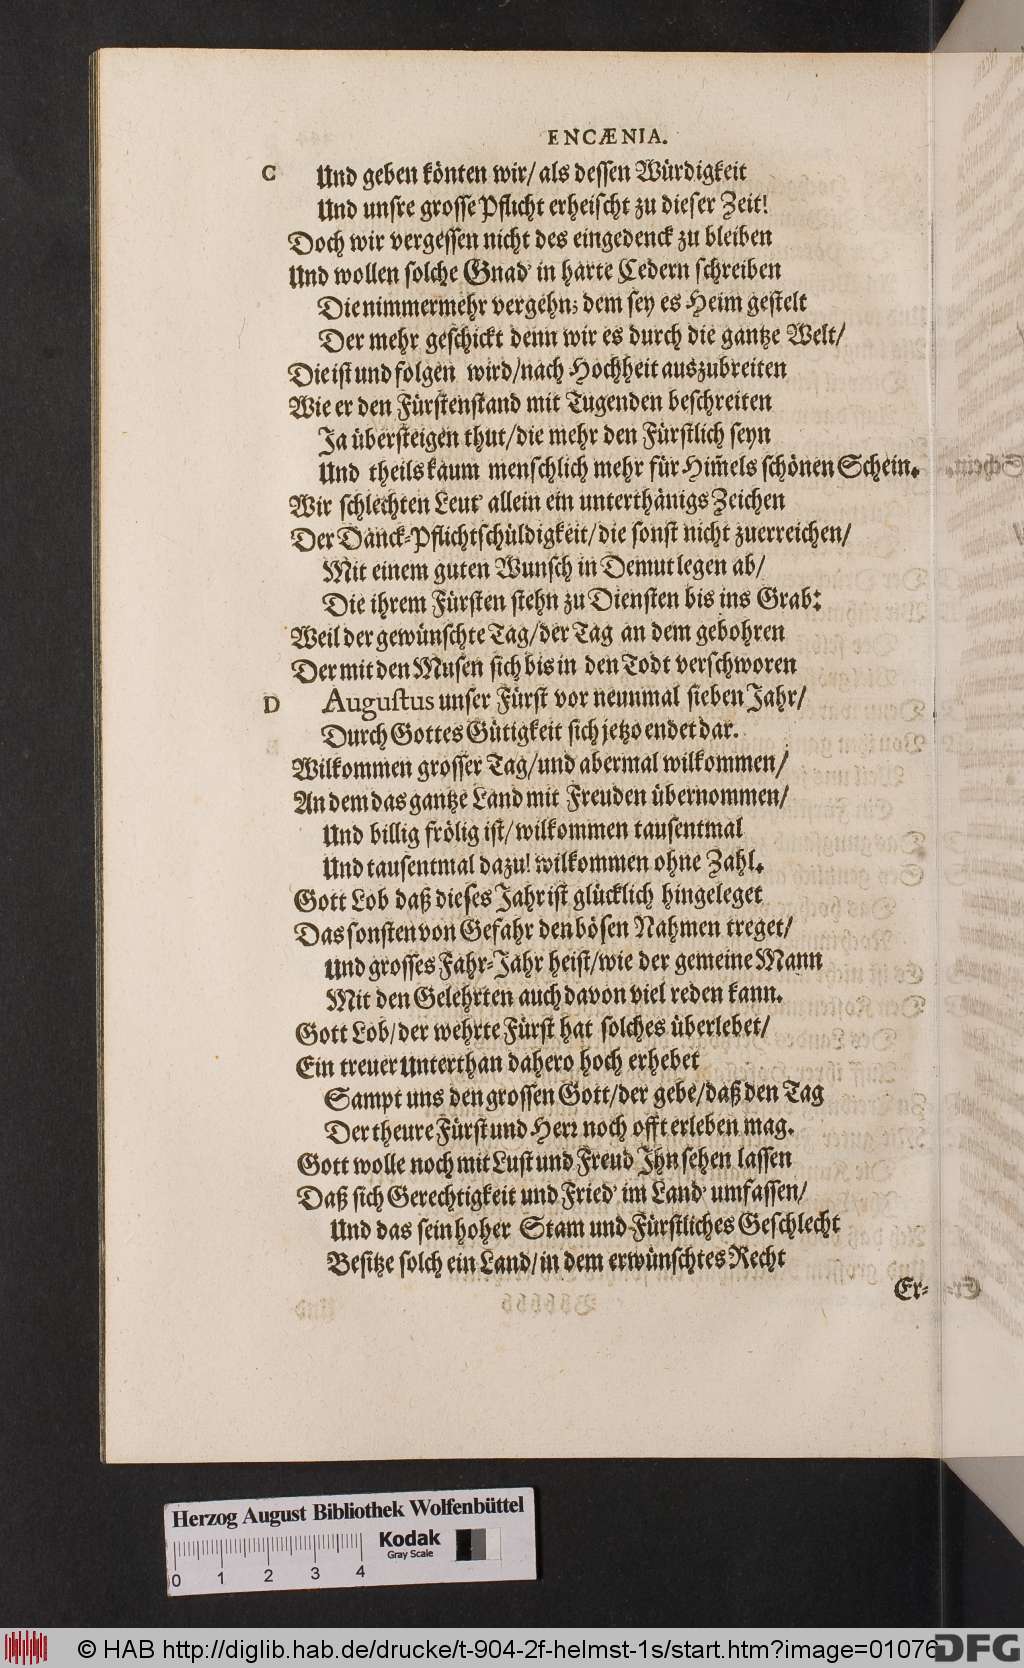 ENCÆNIA.
C Und geben könten wir/ als dessen Würdigkeit
Und unsre grosse Pflicht erheischt zu dieser Zeit!
Doch wir vergessen nicht des eingedenck zu bleiben
Und wollen solche Gnad' in harte Cedern schreiben
Die nimmermehr vergehn; dem sey es Heim gestelt
Der mehr geschickt denn wir es durch die gantze Welt/
Die ist und folgen wird/ nach Hochheit auszubreiten
Wie er den Fürstenstand mit Tugenden beschreiten
Ja übersteigen thut/ die mehr den Fürstlich seyn
Und theils kaum menschlich mehr für Him̃els schönen Schein.
Wir schlechten Leut' allein ein unterthänigs Zeichen
Der Danck-Pflichtschüldigkeit/ die sonst nicht zuerreichen/
Mit einem guten Wunsch in Demut legen ab/
Die ihrem Fürsten stehn zu Diensten bis ins Grab:
Weil der gewünschte Tag/ der Tag an dem gebohren
Der mit den Musen sich bis in den Todt verschworen
D Augustus unser Fürst vor neunmal sieben Jahr/
Durch Gottes Gütigkeit sich jetzo endet dar.
Wilkommen grosser Tag/ und abermal wilkommen/
An dem das gantze Land mit Freuden übernommen/
Und billig frölig ist/ wilkommen tausentmal
Und tausentmal dazu! wilkommen ohne Zahl.
Gott Lob daß dieses Jahr ist glücklich hingeleget
Das sonsten von Gefahr den bösen Nahmen treget/
Und grosses Fahr-Jahr heist/ wie der gemeine Mann
Mit den Gelehrten auch davon viel reden kann.
Gott Lob/ der wehrte Fürst hat solches überlebet/
Ein treuer Unterthan dahero hoch erhebet
Sampt uns den grossen Gott/ der gebe/ daß den Tag
Der theure Fürst und Herr noch offt erleben mag.
Gott wolle noch mit Lust und Freud Ihn sehen lassen
Daß sich Gerechtigkeit und Fried' im Land' umfassen/
Und das sein hoher Stam und Fürstliches Geschlecht
Besitze solch ein Land/ in dem erwünschtes Recht
Er-
Herzog August Bibliothek Wolfenbüttel
Kodak
Gray Scale
0 1 2 3 4
© HAB http://diglib.hab.de/drucke/t-904-2f-helmst-1s/start.htm?image=01076
DFG